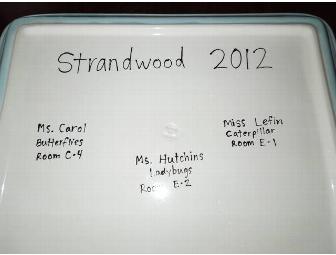 Strandwood 2012
Ms. Carol
Butterflies
Room C-4
Ms. Hutchins
Ladybugs
Room E-2
Miss Lefin
Caterpillar
Room E-1